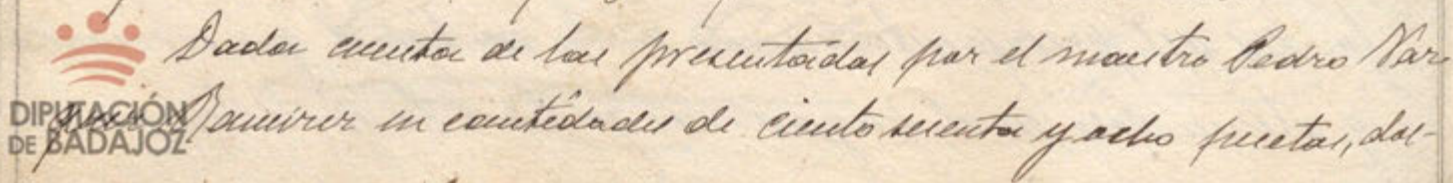 Dada cuenta de las presentadas por el maestro Pedro Var
Ramirez en cantidades de ciento sesenta y ocho pesetas, dos-
DIPUTACIÓN
DE BADAJOZ